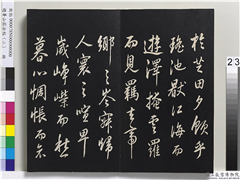 於芝田夕飲乎
瑤池猒江海而
遊澤掩雲羅
而見羈去帝
鄉之岑寂歸
人寰之喧卑
歲崢嶸而愁
暮心惆悵而哀
23